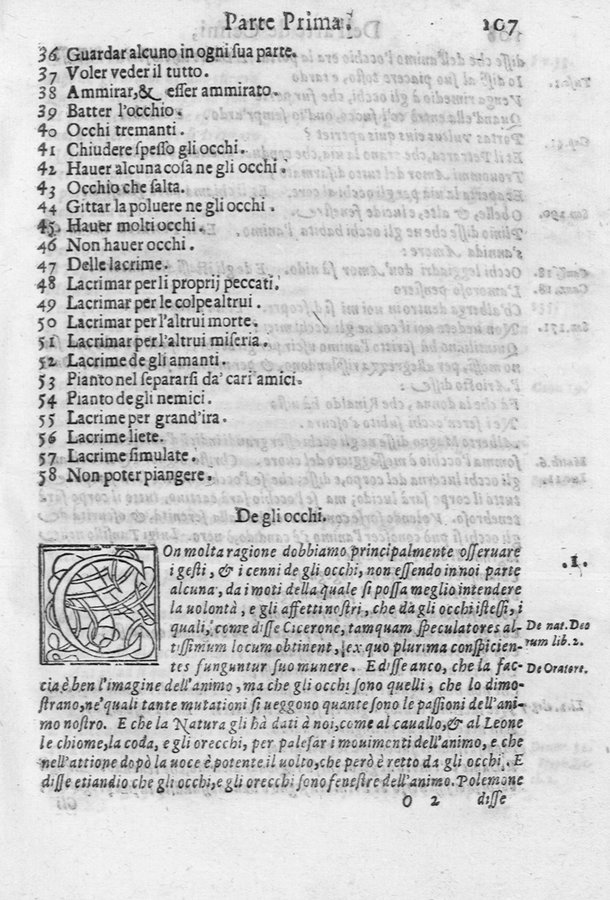 Parte Prima. 107
36 Guardar alcuno in ogni sua parte.
37 Voler veder il tutto.
38 Ammirar, & esser ammirato.
39 Batter l'occhio.
40 Occhi tremanti.
41 Chiudere spesso gli occhi.
42 Hauer alcuna cosa ne gli occhi.
43 Occhio che salta.
44 Gittar la poluere ne gli occhi.
45 Hauer molti occhi.
46 Non hauer occhi.
47 Delle lacrime.
48 Lacrimar per li proprij peccati.
49 Lacrimar per le colpe altrui.
50 Lacrimar per l'altrui morte.
51 Lacrimar per l'altrui miseria.
52 Lacrime de gli amanti.
53 Pianto nel separarsi da' cari amici.
54 Pianto de gli nemici.
55 Lacrime per grand'ira.
56 Lacrime liete.
57 Lacrime simulate.
58 Non poter piangere.
De gli occhi.
COn molta ragione dobbiamo principalmente osseruare .1.
i gesti, & i cenni de gli occhi, non essendo in noi parte
alcuna, da i moti della quale si possa meglio intendere
la uolontà, e gli affetti nostri, che dà gli occhi istessi, i
quali, come disse Cicerone, tamquam speculatores al- De nat. Deo
tissimum locum obtinent, ex quo plurima conspicien- rum lib. 2.
tes funguntur suo munere. E disse anco, che la fac- De Oratore.
cia è ben l'imagine dell'animo, ma che gli occhi sono quelli, che lo dimo-
strano, ne' quali tante mutationi si ueggono quante sono le passioni dell'ani-
mo nostro. E che la Natura gli hà dati à noi, come al cauallo, & al Leone
le chiome, la coda, e gli orecchi, per palesar i mouimenti dell'animo, e che
nell'attione dopò la uoce è potente il uolto, che però è retto da gli occhi. E
disse etiandio che gli occhi, e gli orecchi sono fenestre dell'animo. Polemone
O 2 disse